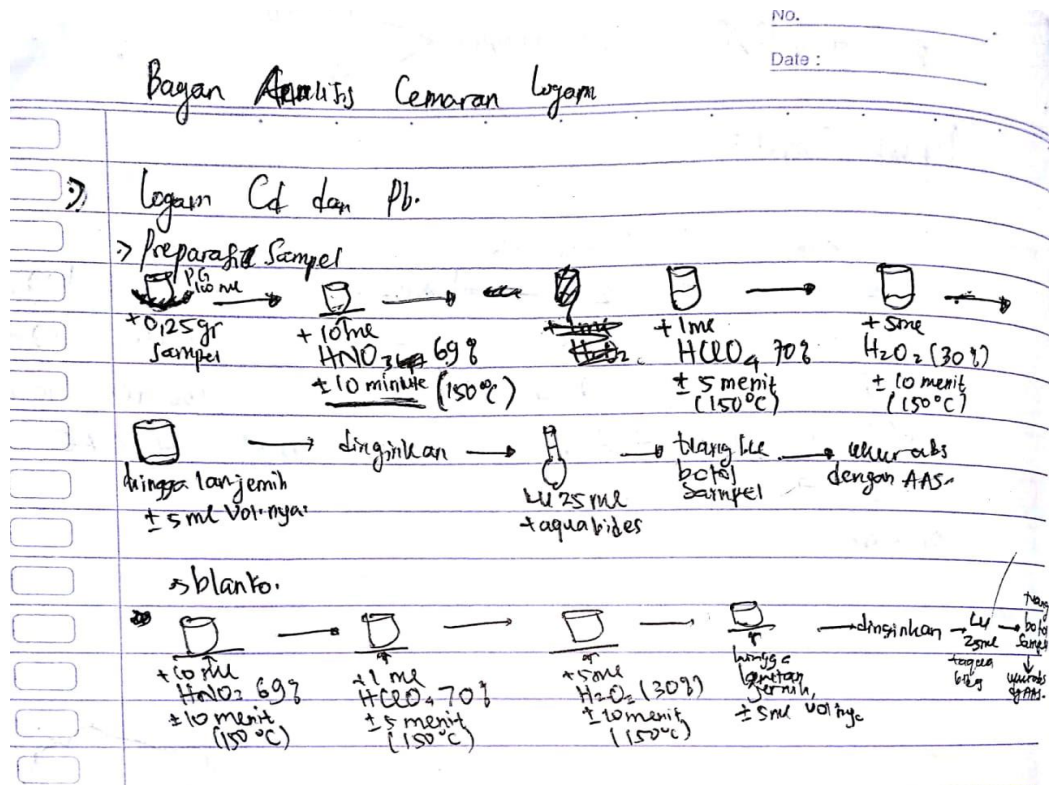 No.
Date :
Bagan Analisis Cemaran Logam
Logam Cd dan Pb.
Preparasi Sampel
P.G 100 ml
+ 0,25 gr sampel
+ 10 ml
HNO3 69%
± 10 minute (150°C)
+ 1 ml
HClO4 70%
± 5 menit
(150°C)
+ 5 ml
H2O2 (30%)
± 10 menit
(150°C)
hingga lar jernih
± 5 ml Vol.nya.
dinginkan
LU 25 ml
+ aquabides
tuang ke
botol
sampel
ukur abs
dengan AAS.
blanko.
+ 10 ml
HNO3 69%
± 10 menit
(150°C)
+ 1 ml
HClO4 70%
± 5 menit
(150°C)
+ 5 ml
H2O2 (30%)
± 10 menit
(150°C)
hingga
larutan
jernih,
± 5 ml Vol nya
dinginkan
LU
25 ml
+ aqua
tuang
botol
sampel
ukur abs
AAS.